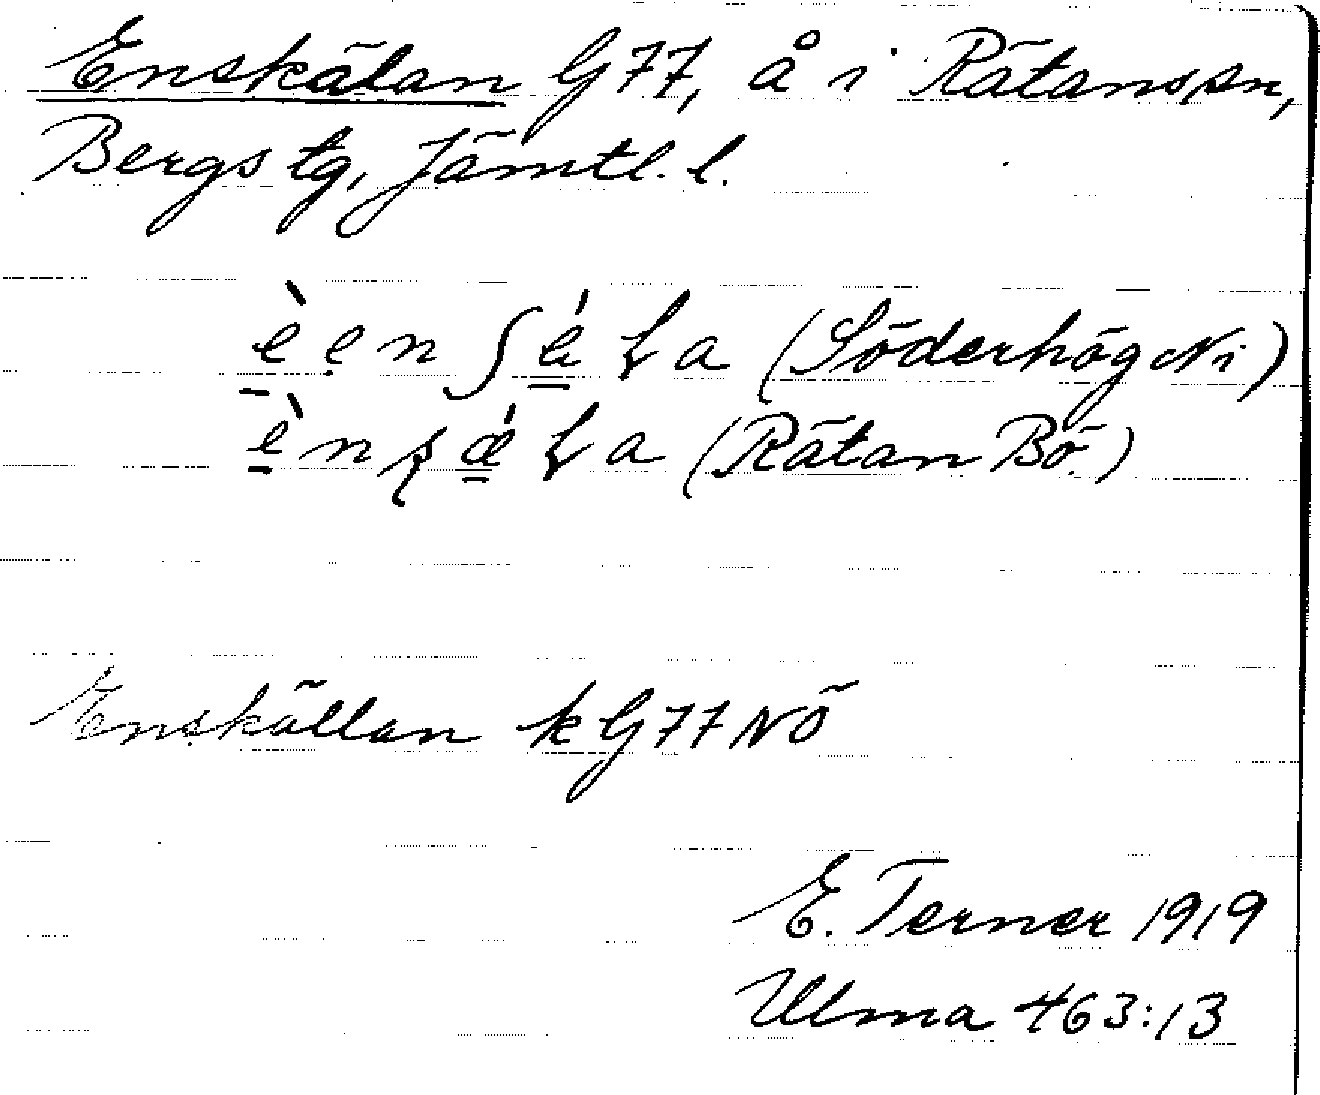 Enskälan G77, å i Rätans sn,
Bergs tg, Jämtl. l.
(Söderhög Ni)
(Rätan Bö)
Enskällan k G77 NÖ
E. Terner 1919
Ulma 463:13